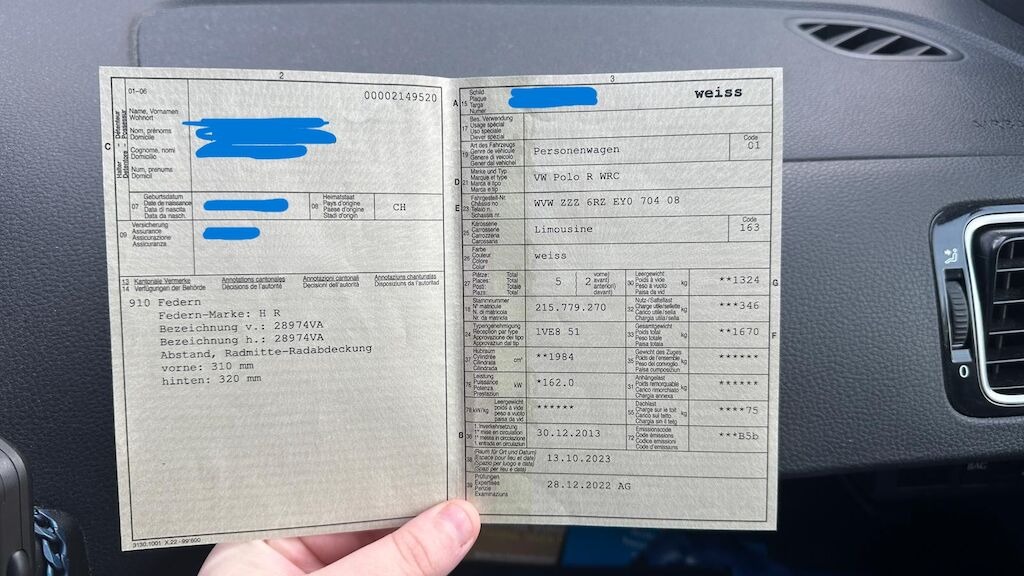 2
01-06
00002149520
Name, Vornamen
Wohnort
Nom, prénoms
Domicile
Cognome, nomi
Domicilio
Num, prenums
Domicil
C
Halter Détenteur
Detentore Possessur
07
Geburtsdatum
Date de naissance
Data di nascita
Data da nasch.
08
Heimatstaat
Pays d'origine
Paese d'origine
Stadi d'origin
CH
09
Versicherung
Assurance
Assicurazione
Assicuranza
13 Kantonale Vermerke Annotations cantonales Annotazioni cantonali Annotaziuns chantunalas
14 Verfügungen der Behörde Décisions de l'autorité Decisioni dell'autorità Disposiziuns da l'autoritad
910 Federn
Federn-Marke: H R
Bezeichnung v.: 28974VA
Bezeichnung h.: 28974VA
Abstand, Radmitte-Radabdeckung
vorne: 310 mm
hinten: 320 mm
3130.1001 X.22 - 99'600
3
A 15
Schild
Plaque
Targa
Numer
weiss
17
Bes. Verwendung
Usage spécial
Uso speciale
Diever spezial
19
Art des Fahrzeugs
Genre de véhicule
Genere di veicolo
Gener dal vehichel
Personenwagen
Code
01
D 21
Marke und Typ
Marque et type
Marca e tipo
Marca e tip
VW Polo R WRC
E 23
Fahrgestell-Nr.
Châssis no
Telaio n.
Schassis nr.
WVW ZZZ 6RZ EY0 704 08
25
Karosserie
Carrosserie
Carrozzeria
Carossaria
Limousine
Code
163
26
Farbe
Couleur
Colore
Colur
weiss
27
Plätze Total
Places: Total
Posti: Totale
Plazs: Total
5 2
vorne)
avant)
anteriori)
davant)
30
Leergewicht
Poids à vide
Peso a vuoto
Paisa da vid
kg
**1324
G
18
Stammnummer
N° matricule
N. di matricola
Nr. da matricla
215.779.270
32
Nutz-/Sattellast
Charge utile/sellette
Carico utile/sella
Chargia utila/sella
kg
***346
24
Typengenehmigung
Réception par type
Approvazione del tipo
Approvaziun dal tip
1VE8 51
33
Gesamtgewicht
Poids total
Peso totale
Paisa totala
kg
**1670
F
37
Hubraum
Cylindrée
Cilindrata
Cilindrada
cm³
**1984
35
Gewicht des Zuges
Poids de l'ensemble
Peso del convoglio
Paisa cumposiziun
kg
******
76
Leistung
Puissance
Potenza
Prestaziun
kW
*162.0
31
Anhängelast
Poids remorquable
Carico rimorchiato
Chargia annexa
kg
******
78 kW/kg
Leergewicht
poids à vide
peso a vuoto
paisa da vid
******
55
Dachlast
Charge sur le toit
Carico sul tetto
Chargia sin il tetg
kg
****75
B 36
1. Inverkehrsetzung
1re mise en circulation
1a messa in circolazione
1. entrada en circulaziun
30.12.2013
72
Emissionscode
Code émissions
Codice emissioni
Code d'emissiuns
***B5b
38
(Raum für Ort und Datum)
(Espace pour lieu et date)
(Spazio per luogo e data)
(Spazi per lieu e data)
13.10.2023
39
Prüfungen
Expertises
Perizie
Examinaziuns
28.12.2022 AG
0
BAG